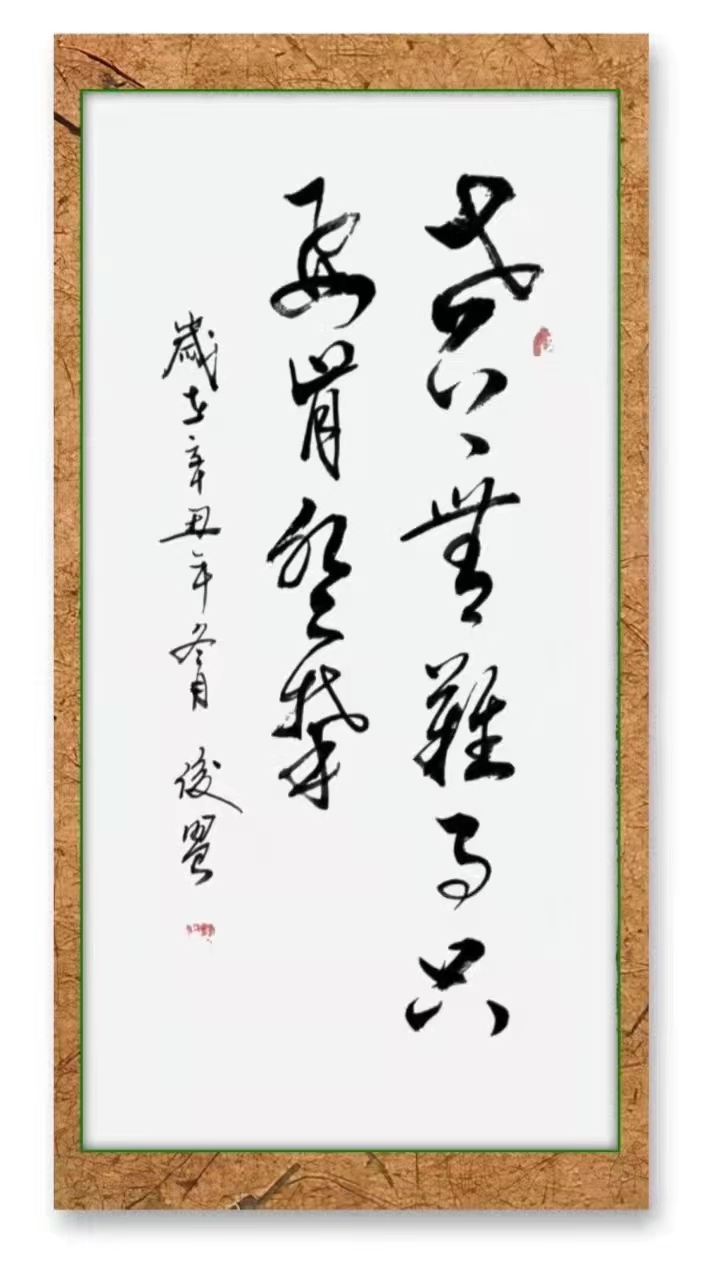 世上無難事只
要肯登攀
歲在辛丑年冬月 俊